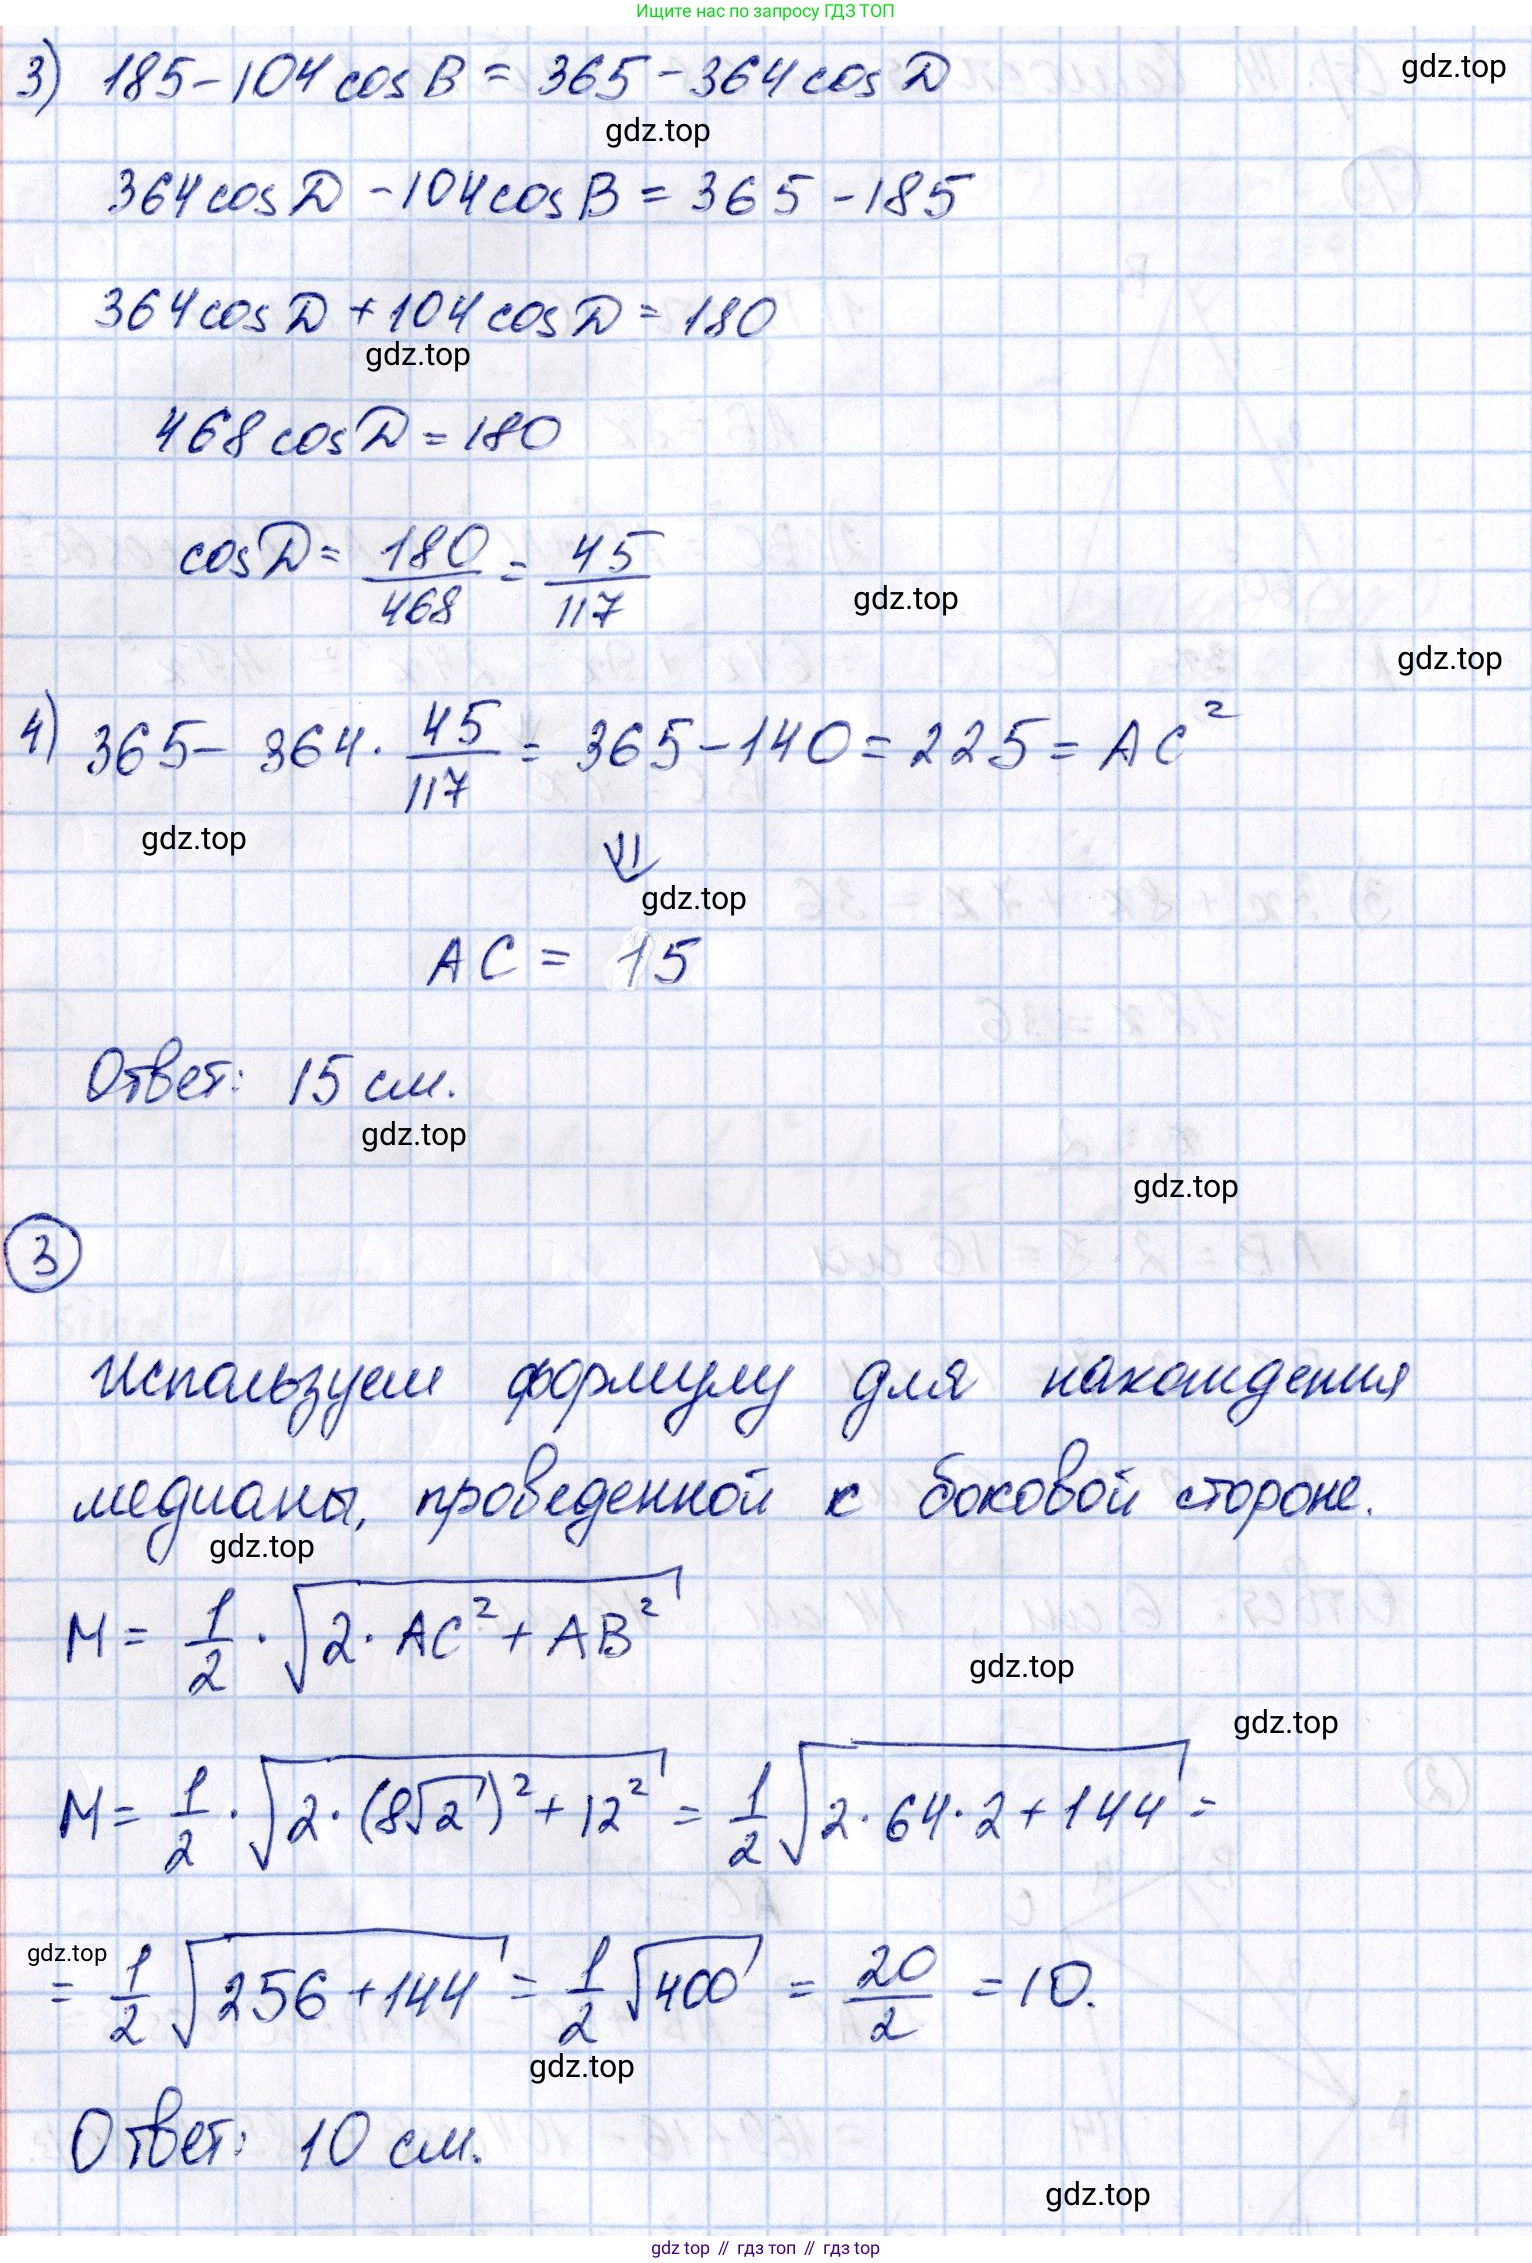 Ищите нас по запросу ГДЗ ТОП
3) 185 - 104 cos B = 365 - 364 cos D
gdz.top
gdz.top
364 cos D - 104 cos B = 365 - 185
364 cos D + 104 cos D = 180
gdz.top
468 cos D = 180
cos D = 180/468 = 45/117
gdz.top
gdz.top
4) 365 - 364 · 45/117 = 365 - 140 = 225 = AC²
gdz.top
⇓
gdz.top
AC = 15
Ответ: 15 см.
gdz.top
gdz.top
3
Используем формулу для нахождения
медианы, проведенной к боковой стороне.
gdz.top
M = 1/2 · √(2 · AC² + AB²)
gdz.top
gdz.top
M = 1/2 · √(2 · (8√2)² + 12²) = 1/2 √(2 · 64 · 2 + 144) =
gdz.top
= 1/2 √(256 + 144) = 1/2 √400 = 20/2 = 10.
gdz.top
Ответ: 10 см.
gdz.top
gdz top // гдз топ // гдз top